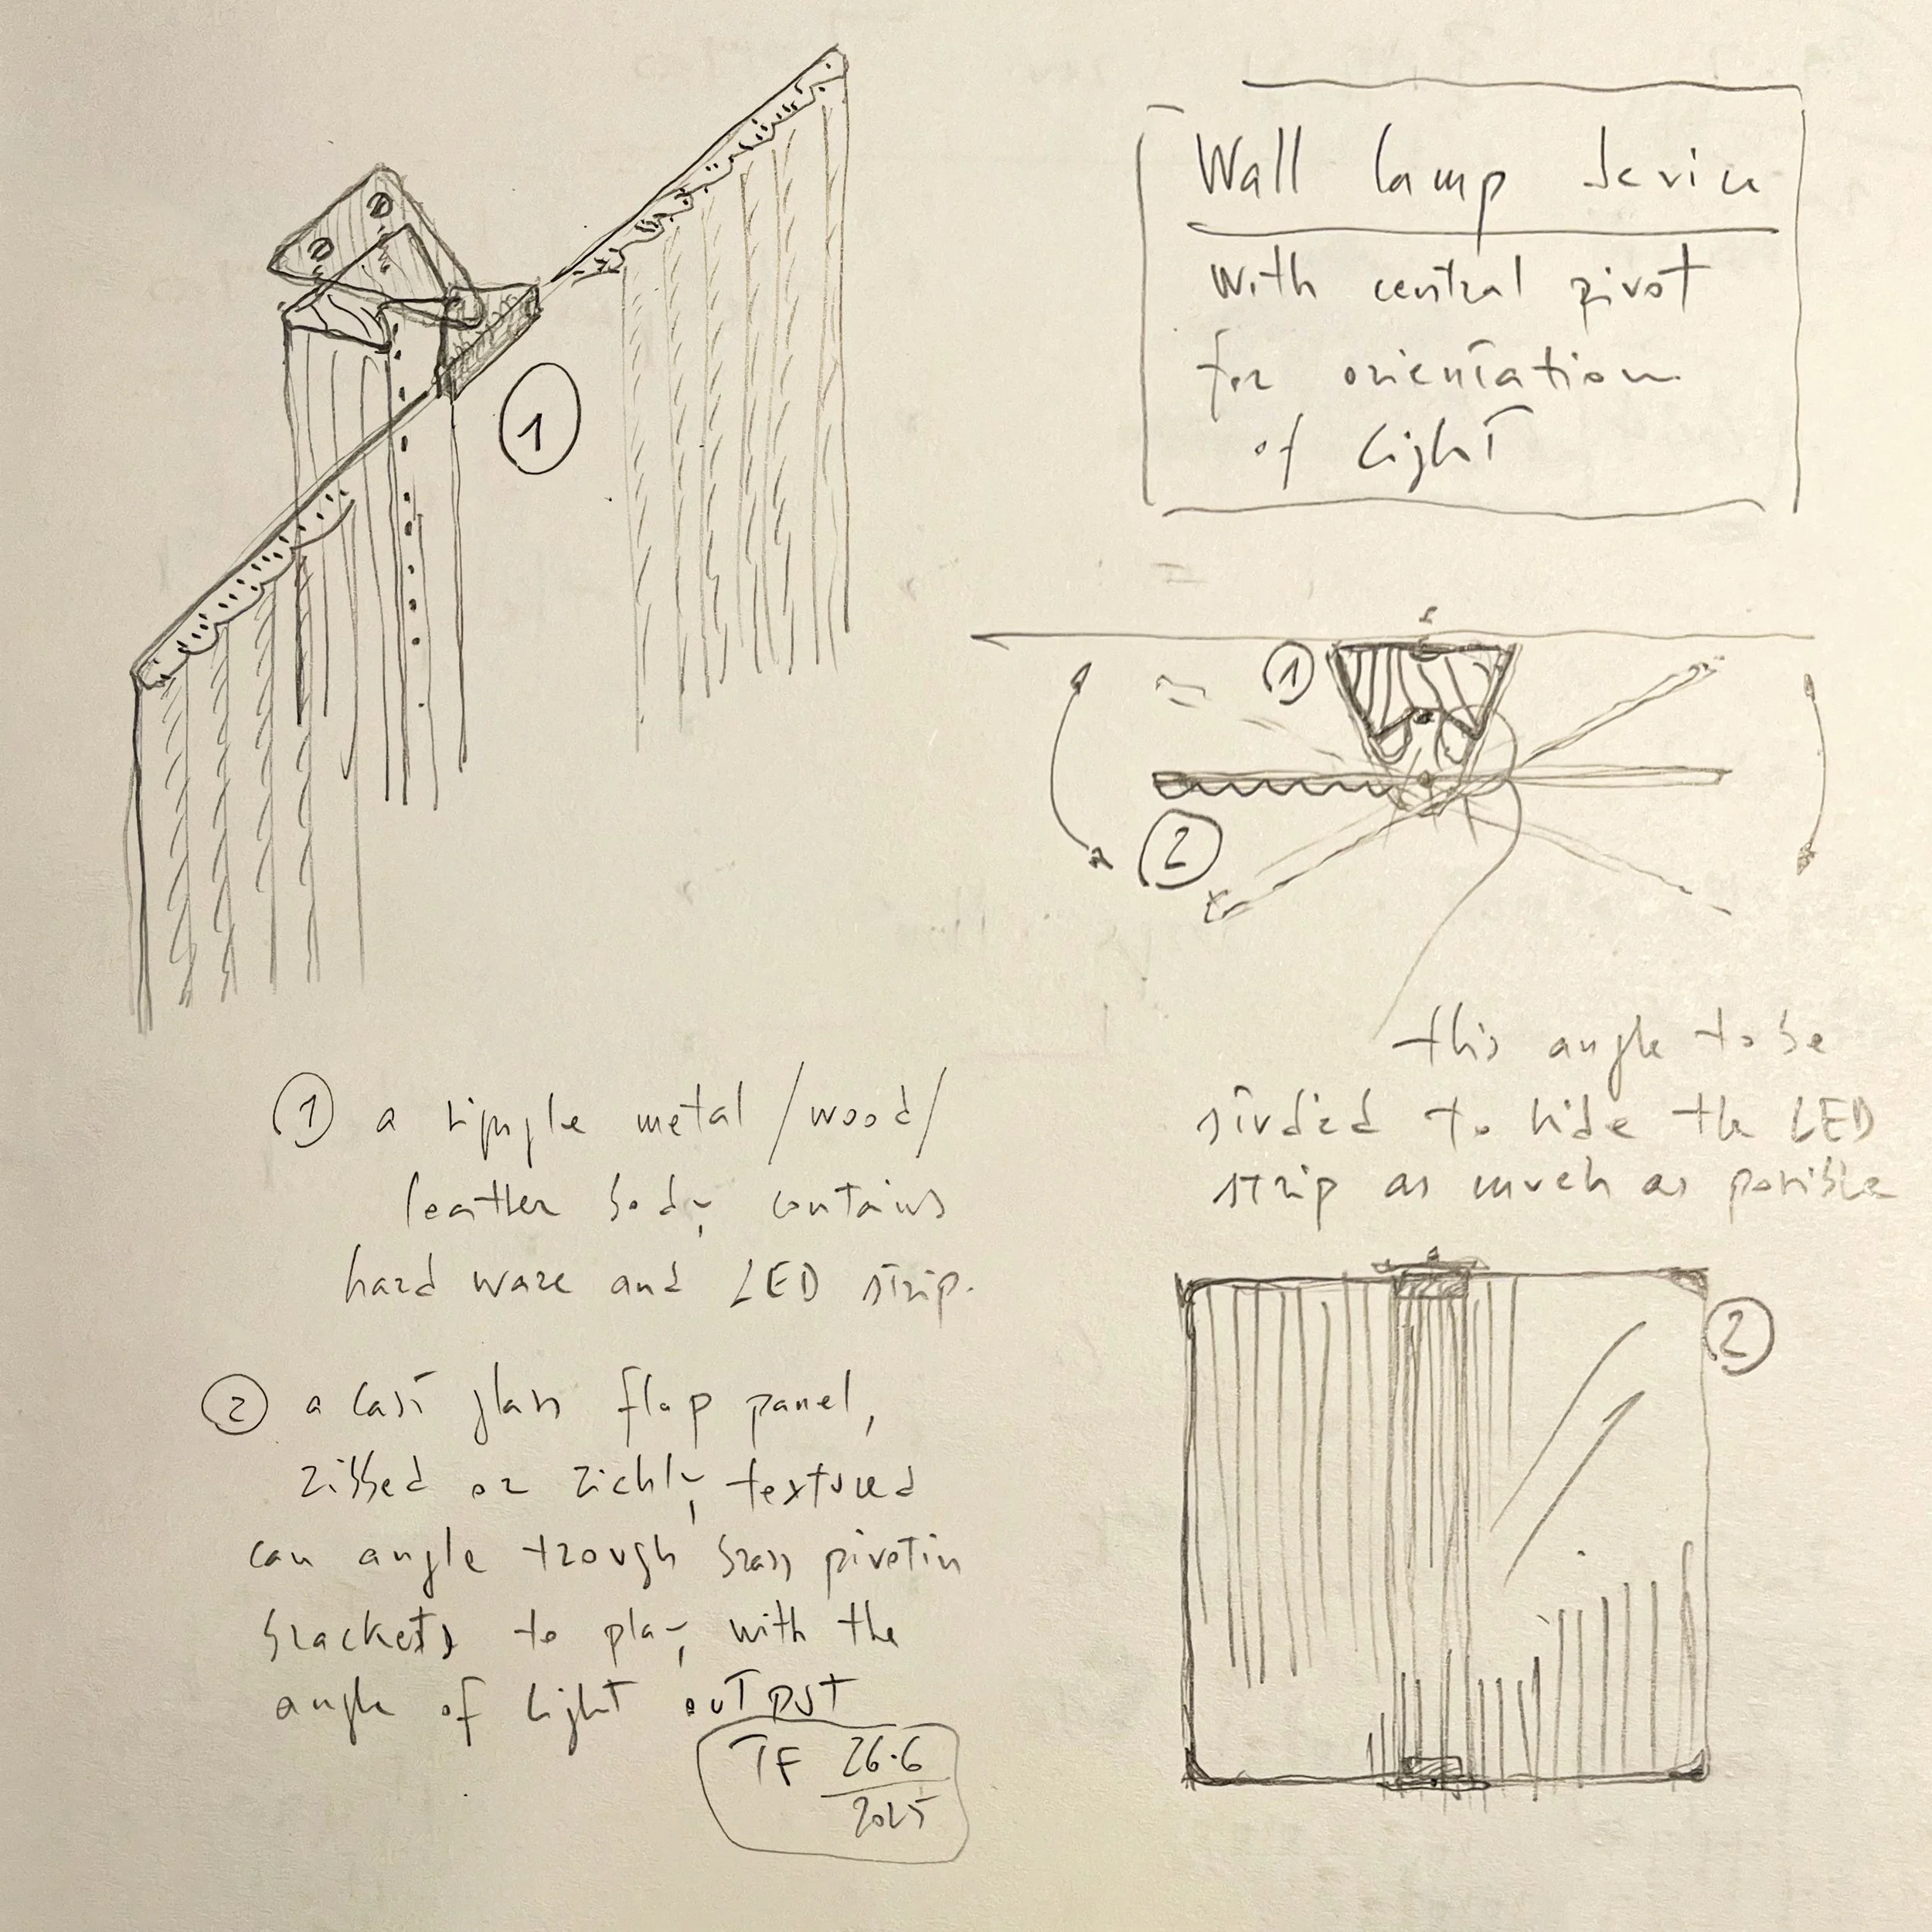 Wall lamp device
with central pivot
for orientation
of light
1
1
2
this angle to be
studied to hide the LED
strip as much as possible
1 a simple metal /wood/
leather body contains
hard ware and LED strip.
2 a cast glass flap panel,
ribbed or richly textured
can angle trough brass pivotin
brackets to play with the
angle of light output
TF 26.6
2025
2